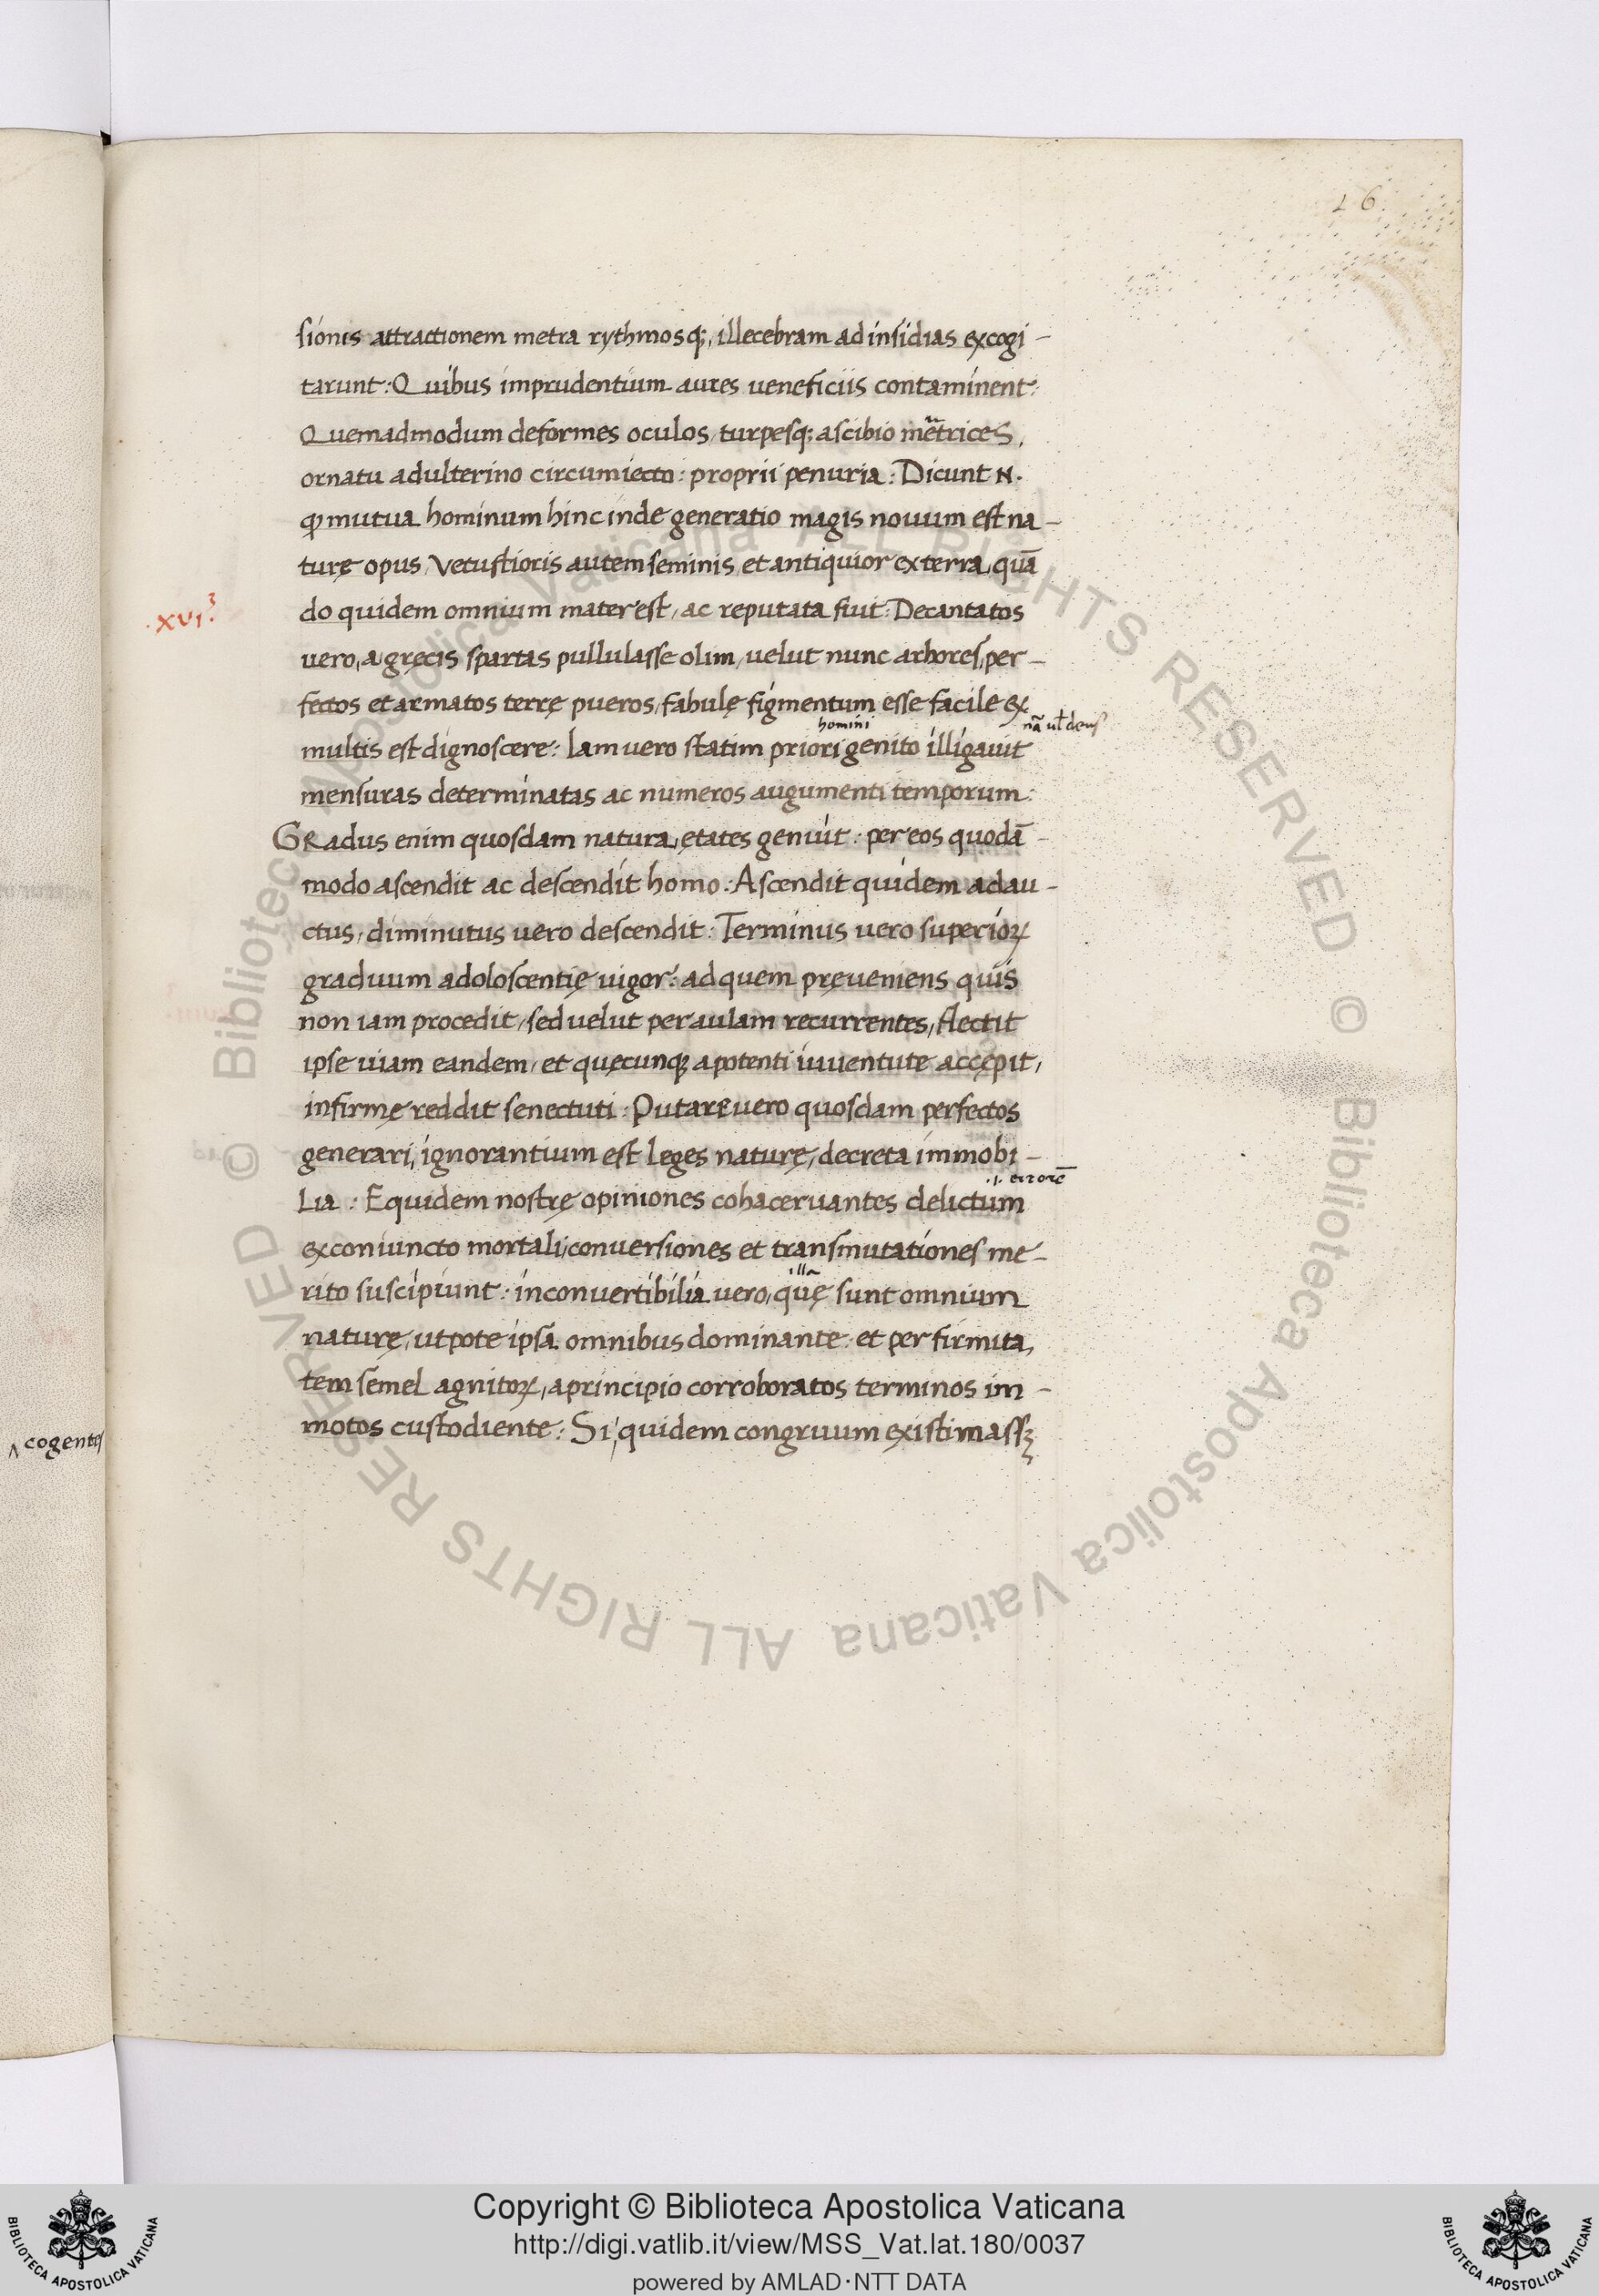 16
sionis attractionem metra rythmosq;, illecebram ad insidias excogi-
tarunt: Quibus imprudentium aures ueneficiis contaminent:
Quemadmodum deformes oculos, turpesq; a scibio mẽtrices,
ornatu adulterino circumiecto: proprii penuria: Dicunt N.
ꝙ mutua hominum hinc inde generatio magis nouum est na-
turę opus, Vetustioris autem seminis, et antiquior ex terra, quã
.XVI.
do quidem omnium mater est, ac reputata fuit: Decantatos
uero, a gręcis spartas pullulasse olim, uelut nunc arbores, per-
fectos et armatos terrę pueros, fabulę figmentum esse facile ex
homini nã ul deus
multis est dignoscere: Iam uero statim priori genito illigauit
mensuras determinatas ac numeros augumenti temporum:
Gradus enim quosdam natura, ętates genuit: per eos quodã-
modo ascendit ac descendit homo: Ascendit quidem adau-
ctus, diminutus uero descendit: Terminus uero superioꝝ
graduum adoloscentię uigor: ad quem pręueniens quis
non iam procedit, sed uelut per aulam recurrentes, flectit
ipse uiam eandem, et quęcunqꝫ a potenti iuuentute accępit,
infirmę reddit senectuti: Putare uero quosdam perfectos
generari, ignorantium est leges naturę, decreta immobi-
.i. errorẽ
lia: Equidem nostrę opiniones cohaceruantes delictum
ex coniuncto mortali, conuersiones et transmutationes me-
illa
rito suscipiunt: inconuertibilia uero, quę sunt omnium
naturę, utpote ipsa omnibus dominante: et per firmita,
tem semel agnitoꝝ, a principio corroboratos terminos im-
cogentes
motos custodiente: Si, quidem congruum existimassꝫ
© Biblioteca Apostolica Vaticana ALL RIGHTS RESERVED © Biblioteca Apostolica Vaticana ALL RIGHTS RESERVED
Copyright © Biblioteca Apostolica Vaticana
http://digi.vatlib.it/view/MSS_Vat.lat.180/0037
powered by AMLAD·NTT DATA
BIBLIOTECA APOSTOLICA VATICANA
BIBLIOTECA APOSTOLICA VATICANA